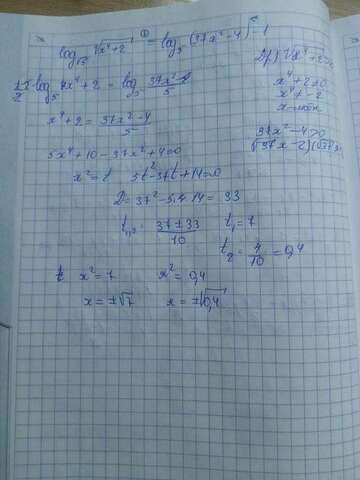 log_√5 √(x⁴+2) ① = log₅ (37x²-4) - 1
log₅ x⁴+2 = log₅ (37x²-4)/5
x⁴+2 = (37x²-4)/5
5x⁴+10-37x²+4=0
x²=t 5t²-37t+14=0
D=37²-5·4·14= 33
t₁,₂= (37±33)/10 t₁=7
t₂= 4/10 =0,4
x²=7 x²=0,4
x=±√7 x=±√0,4
x⁴+2≥0
x⁴≠-2
x-любое
37x²-4>0